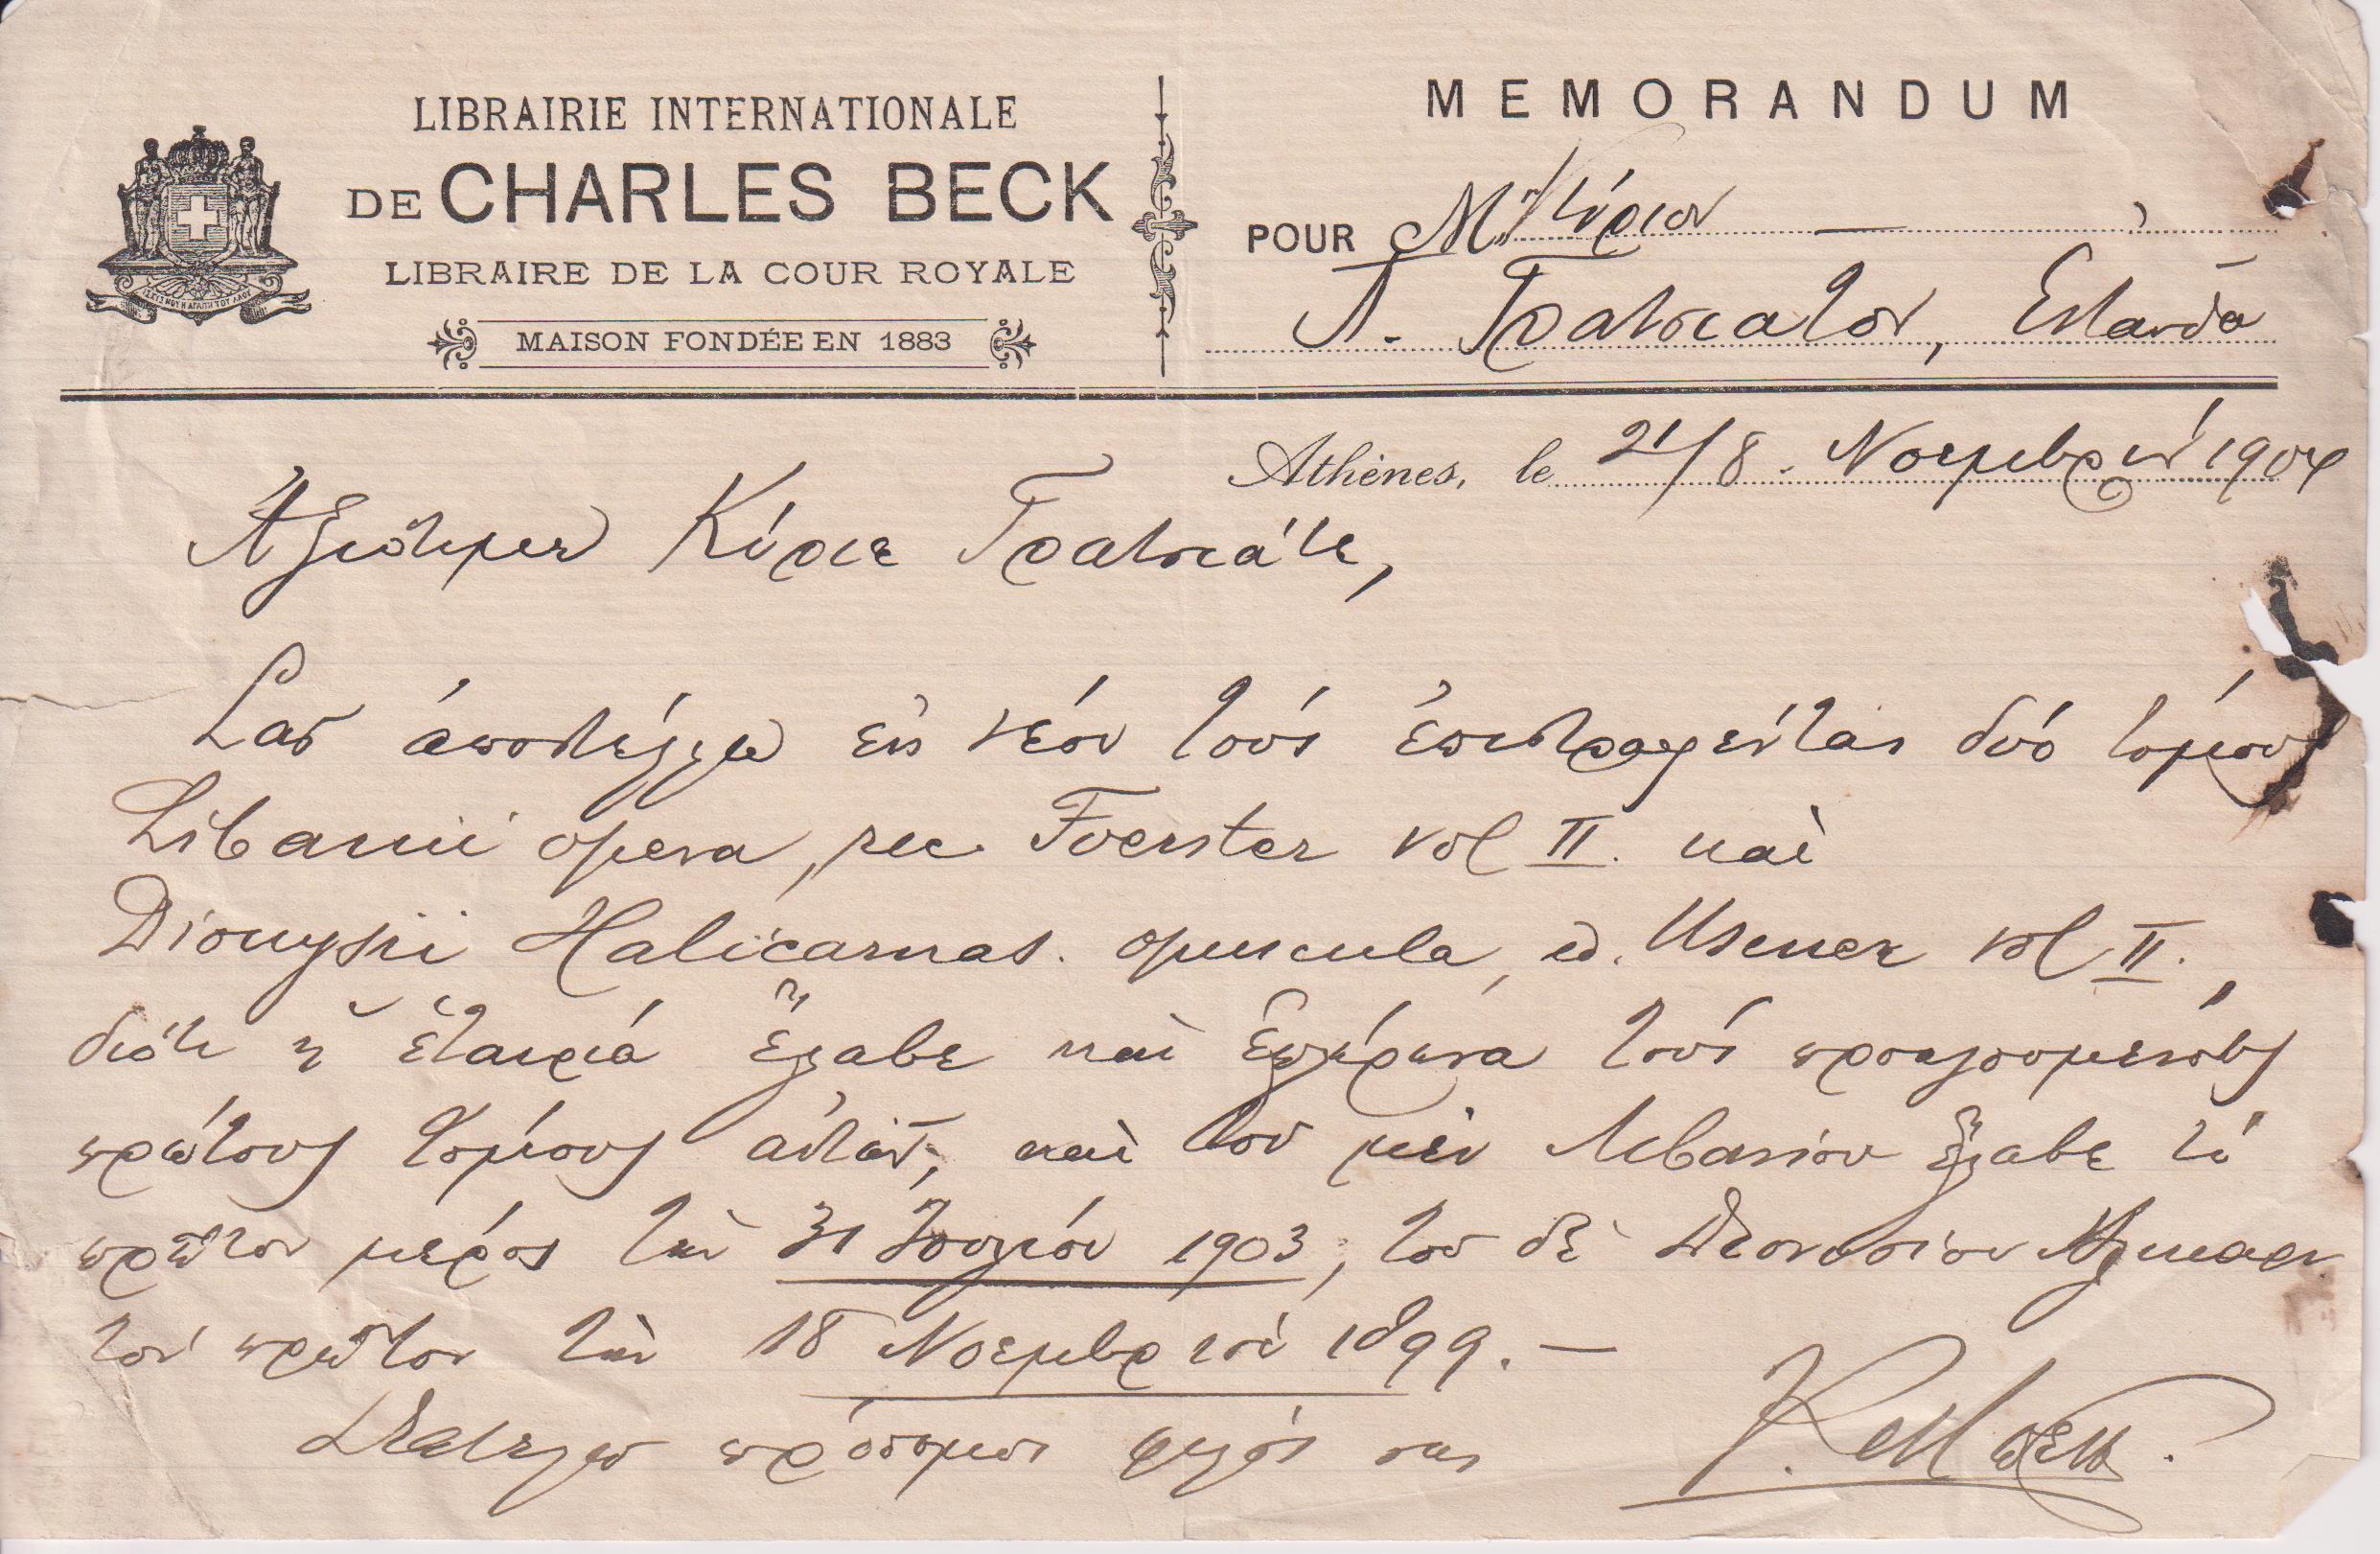 LIBRAIRIE INTERNATIONALE
DE CHARLES BECK
LIBRAIRE DE LA COUR ROYALE
MAISON FONDÉE EN 1883
ΙΣΧΥΣ ΜΟΥ Η ΑΓΑΠΗ ΤΟΥ ΛΑΟΥ
MEMORANDUM
POUR Mr Κύριον
Π. Γρατσιατον, Ενταυθα
Athènes, le 21/8. Νοεμβρίου 1904
Ἀξιότιμε Κύριε Γρατσιάτε,
Σας ἀποστέλλω εἰς νέον τοὺς ἐπιστραφέντας δύο τόμους
Libanii opera, rec. Foerster vol II. καὶ
Dionysii Halicarnas. opuscula, ed. Usener vol II.,
διότι ἡ ἑταιρία ἔλαβε καὶ τοὺς προηγουμένους
πρώτους τόμους αὐτῶν, καὶ του μὲν Λιβανίου ἔλαβε τὸ
πρῶτον μέρος τὴν 31 Ἰουλίου 1903, του δὲ Διονυσίου Ἁλικαρ.
τὸν πρῶτον τὴν 18 Νοεμβρίου 1899. —
Διατελῶ πρόθυμος φίλος σας